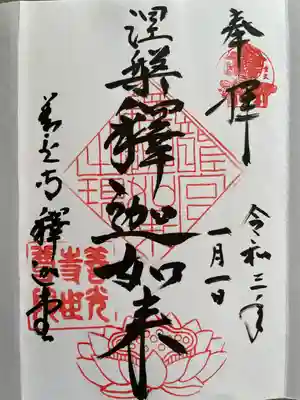 奉拝
令和三年
一月一日
涅槃釋迦如来
善光寺釋迦堂